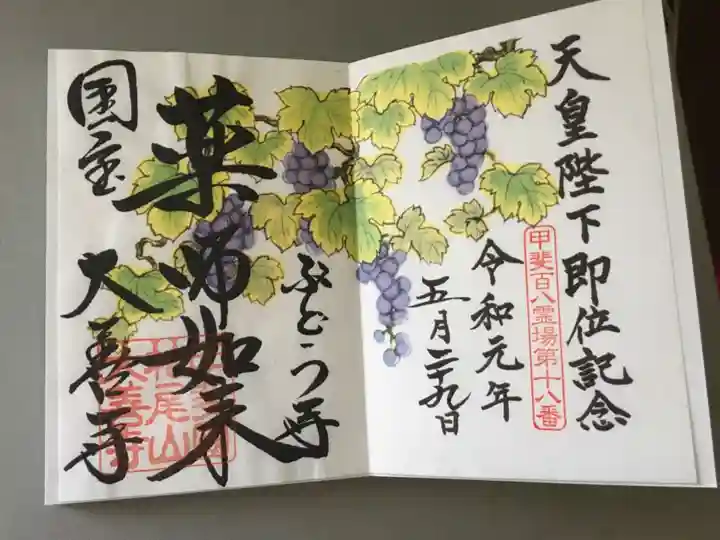 天皇陛下即位記念
甲斐百八霊場第十八番
令和元年
五月二十九日
ぶどう寺
薬師如来
国宝
大善寺